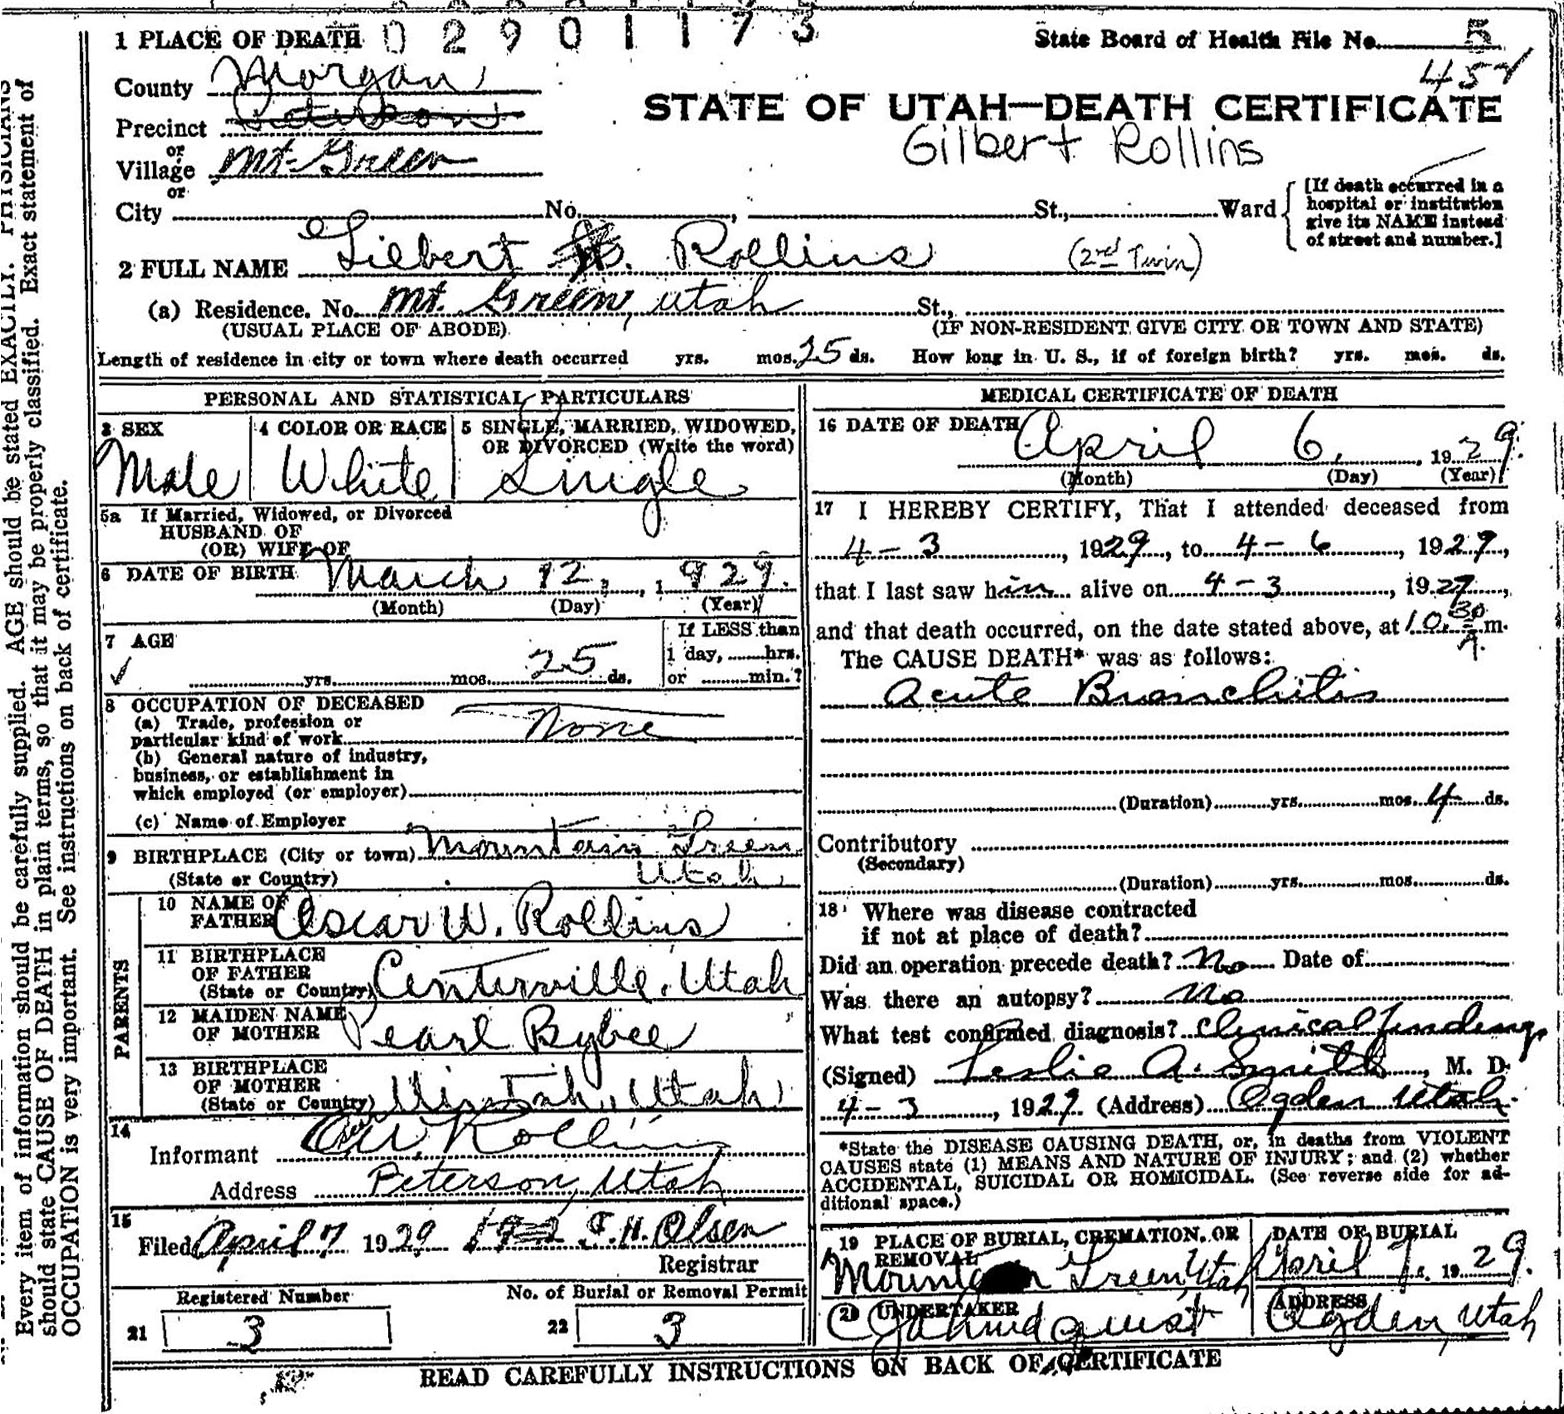 0 2 9 0 1 1 7 3
1 PLACE OF DEATH
State Board of Health File No. 5
County Morgan
458
STATE OF UTAH—DEATH CERTIFICATE
Precinct Peterson
or
Gilbert Rollins
Village Mt. Green
or
City No. , St., Ward
[If death occurred in a
hospital or institution
give its NAME instead
of street and number.]
2 FULL NAME Gilbert Rollins (2nd Twin)
(a) Residence. No. Mt. Green, Utah St.,
(USUAL PLACE OF ABODE) (IF NON-RESIDENT GIVE CITY OR TOWN AND STATE)
Length of residence in city or town where death occurred yrs. mos. 25 ds. How long in U. S., if of foreign birth? yrs. mos. ds.
PERSONAL AND STATISTICAL PARTICULARS
3 SEX
Male
4 COLOR OR RACE
White
5 SINGLE, MARRIED, WIDOWED,
OR DIVORCED (Write the word)
Single
5a If Married, Widowed, or Divorced
HUSBAND OF
(OR) WIFE OF
6 DATE OF BIRTH March 12, 1929.
(Month) (Day) (Year)
7 AGE
yrs. mos. 25 ds.
If LESS than
1 day, hrs.
or min.?
8 OCCUPATION OF DECEASED
(a) Trade, profession or
particular kind of work None
(b) General nature of industry,
business, or establishment in
which employed (or employer)
(c) Name of Employer
9 BIRTHPLACE (City or town) Mountain Green
(State or Country) Utah
PARENTS
10 NAME OF
FATHER Oscar W. Rollins
11 BIRTHPLACE
OF FATHER
(State or Country) Centerville, Utah
12 MAIDEN NAME
OF MOTHER Pearl Bybee
13 BIRTHPLACE
OF MOTHER
(State or Country) Uintah, Utah
14
Informant O.W. Rollins
Address Peterson, Utah
15
Filed April 7 1929 F. H. Olsen
Registrar
Registered Number
21 3
No. of Burial or Removal Permit
22 3
MEDICAL CERTIFICATE OF DEATH
16 DATE OF DEATH April 6, 1929.
(Month) (Day) (Year)
17 I HEREBY CERTIFY, That I attended deceased from
4-3, 1929, to 4-6, 1929,
that I last saw him alive on 4-3, 1929,
and that death occurred, on the date stated above, at 10:30 A. m.
The CAUSE DEATH* was as follows:
Acute Bronchitis
(Duration) yrs. mos. 4 ds.
Contributory
(Secondary)
(Duration) yrs. mos. ds.
18 Where was disease contracted
if not at place of death?
Did an operation precede death? No Date of
Was there an autopsy? No
What test confirmed diagnosis? Clinical findings
(Signed) Leslie A. Smith, M. D.
4-3, 1929 (Address) Ogden Utah.
*State the DISEASE CAUSING DEATH, or, in deaths from VIOLENT
CAUSES state (1) MEANS AND NATURE OF INJURY; and (2) whether
ACCIDENTAL, SUICIDAL OR HOMICIDAL. (See reverse side for ad-
ditional space.)
19 PLACE OF BURIAL, CREMATION, OR
REMOVAL
Mountain Green, Utah
DATE OF BURIAL
April 7. 1929.
20 UNDERTAKER
ADDRESS
Ogden, Utah
READ CAREFULLY INSTRUCTIONS ON BACK OF CERTIFICATE
Every item of information should be carefully supplied. AGE should be stated EXACTLY. PHYSICIANS
should state CAUSE OF DEATH in plain terms, so that it may be properly classified. Exact statement of
OCCUPATION is very important. See instructions on back of certificate.